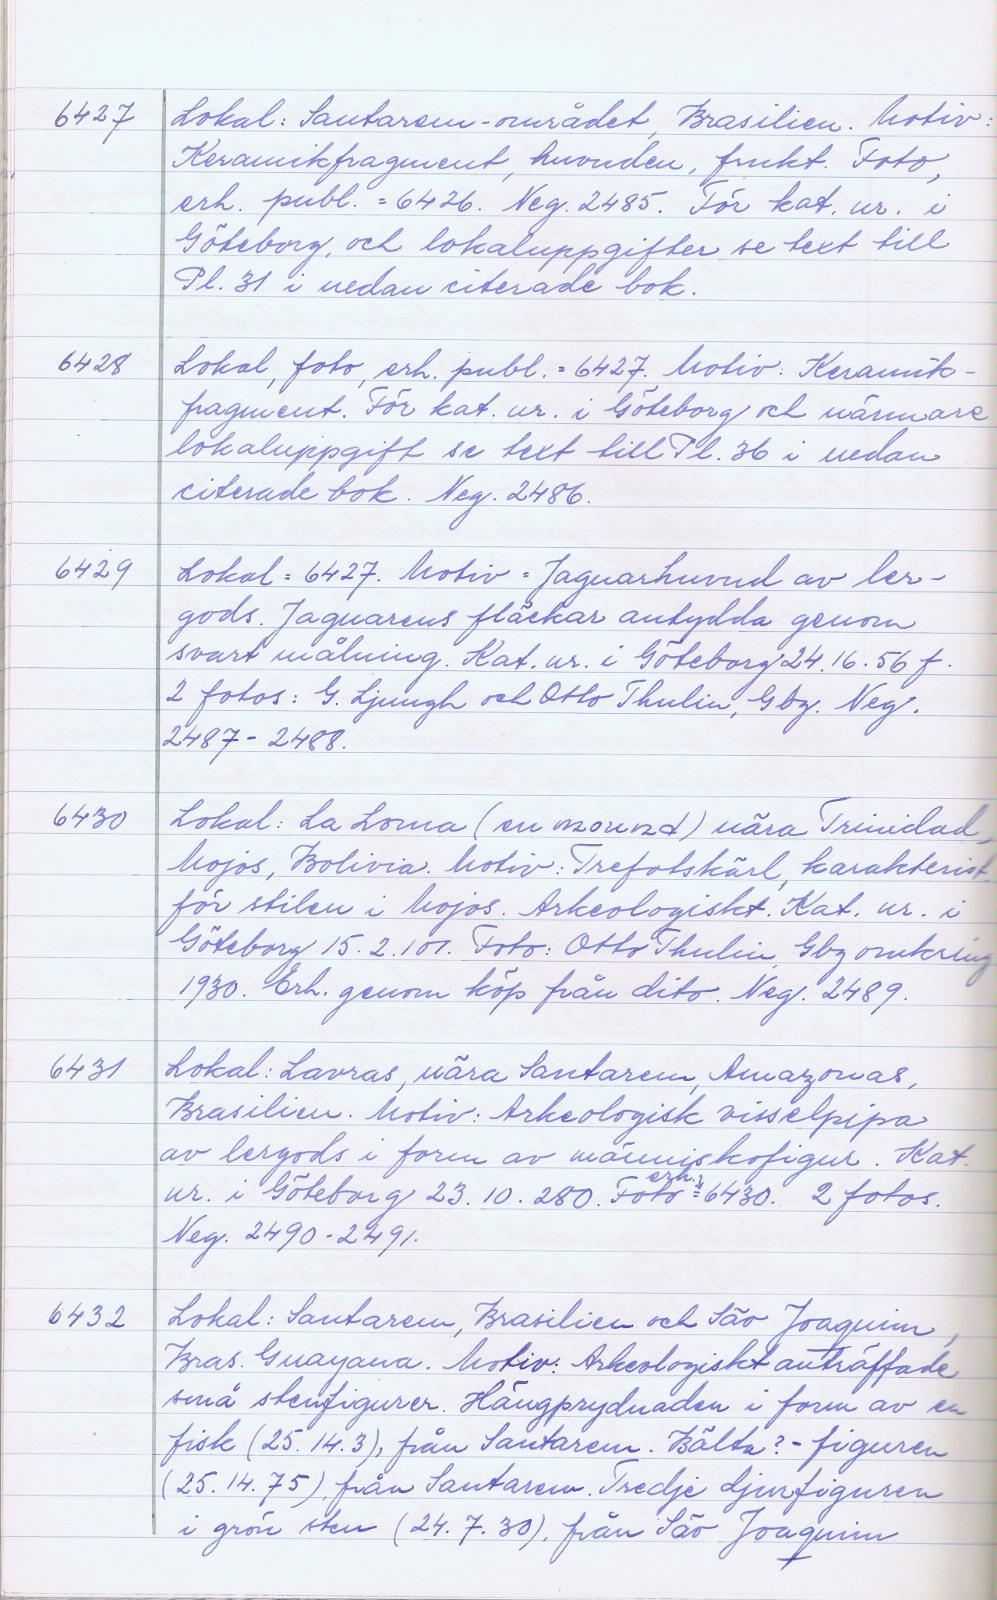 6427 Lokal: Santarem-området, Brasilien. Motiv:
Keramikfragment, huvuden, frukt. Foto,
erh. publ. = 6426. Neg. 2485. För kat. nr. i
Göteborg, och lokaluppgifter se text till
Pl. 31 i nedan citerade bok.
6428 Lokal, foto, erh. publ. = 6427. Motiv: Keramik-
fragment. För kat. nr. i Göteborg och närmare
lokaluppgift se text till Pl. 36 i nedan
citerade bok. Neg. 2486.
6429 Lokal = 6427. Motiv = Jaguarhuvud av ler-
gods. Jaguarens fläckar antydda genom
svart målning. Kat. nr. i Göteborg 24.16.56 f.
2 fotos: G. Ljungh och Otto Thulin, Gbg. Neg.
2487 - 2488.
6430 Lokal: La Loma (en mound) nära Trinidad,
Mojos, Bolivia. Motiv: Trefotskärl, karakterist.
för stilen i Mojos. Arkeologiskt. Kat. nr. i
Göteborg 15.2.101. Foto: Otto Thulin, Gbg omkring
1930. Erh. genom köp från dito. Neg. 2489.
6431 Lokal: Lavras, nära Santarem, Amazonas,
Brasilien. Motiv: Arkeologisk visselpipa
av lergods i form av människofigur. Kat.
nr. i Göteborg 23.10.280. Foto erh. = 6430. 2 fotos.
Neg. 2490 - 2491.
6432 Lokal: Santarem, Brasilien och São Joaquim,
Bras. Guayana. Motiv: Arkeologiskt anträffade
små stenfigurer. Hängprydnaden i form av en
fisk (25.14.3), från Santarem. Bälta?-figuren
(25.14.75), från Santarem. Tredje djurfiguren
i grön sten (24.7.30), från São Joaquim